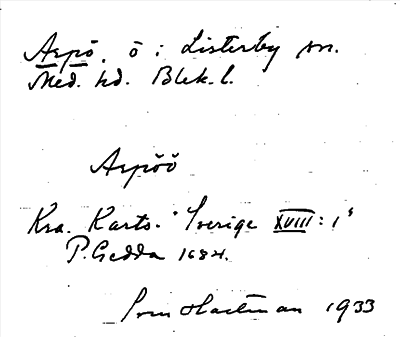 Aspö, ö i Listerby sn.
Med. hd. Blek. l.
Aspöö
Kra. Karts. "Sverige XVIII: 1"
P. Gedda 1684.
Sven Hartman 1933